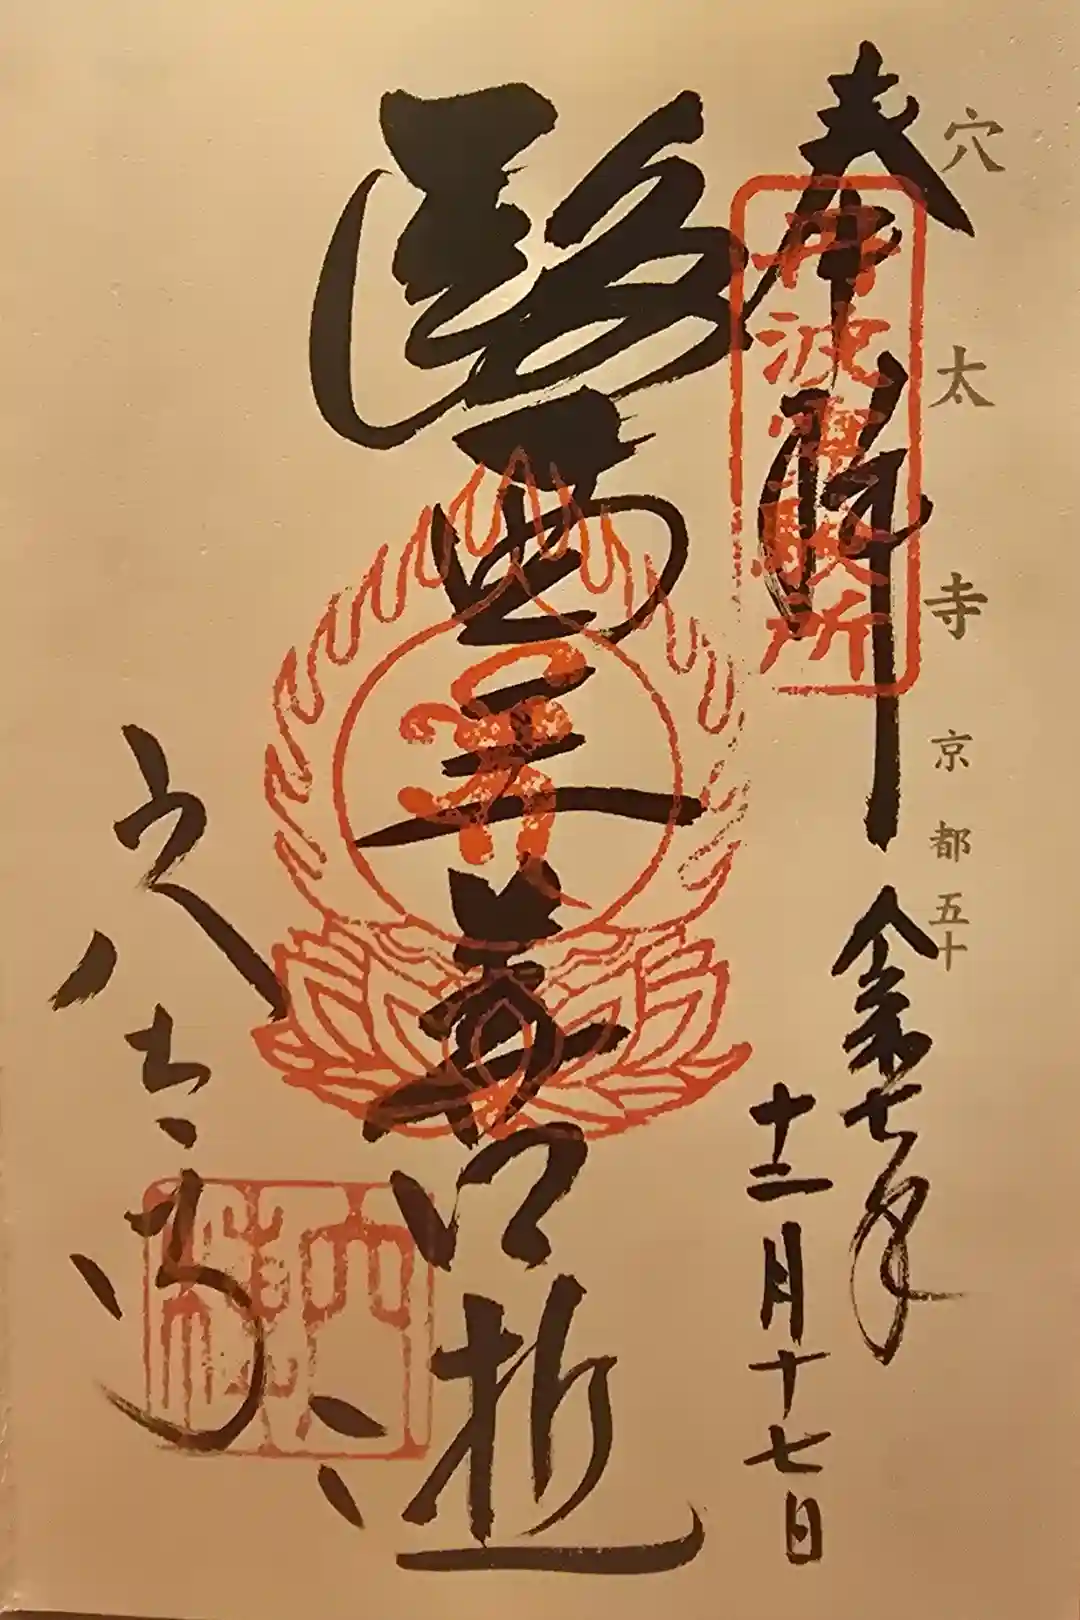 穴太寺 京都五十
奉拝
令和七年
十二月十七日
丹波霊験所
醫王善逝
穴太寺